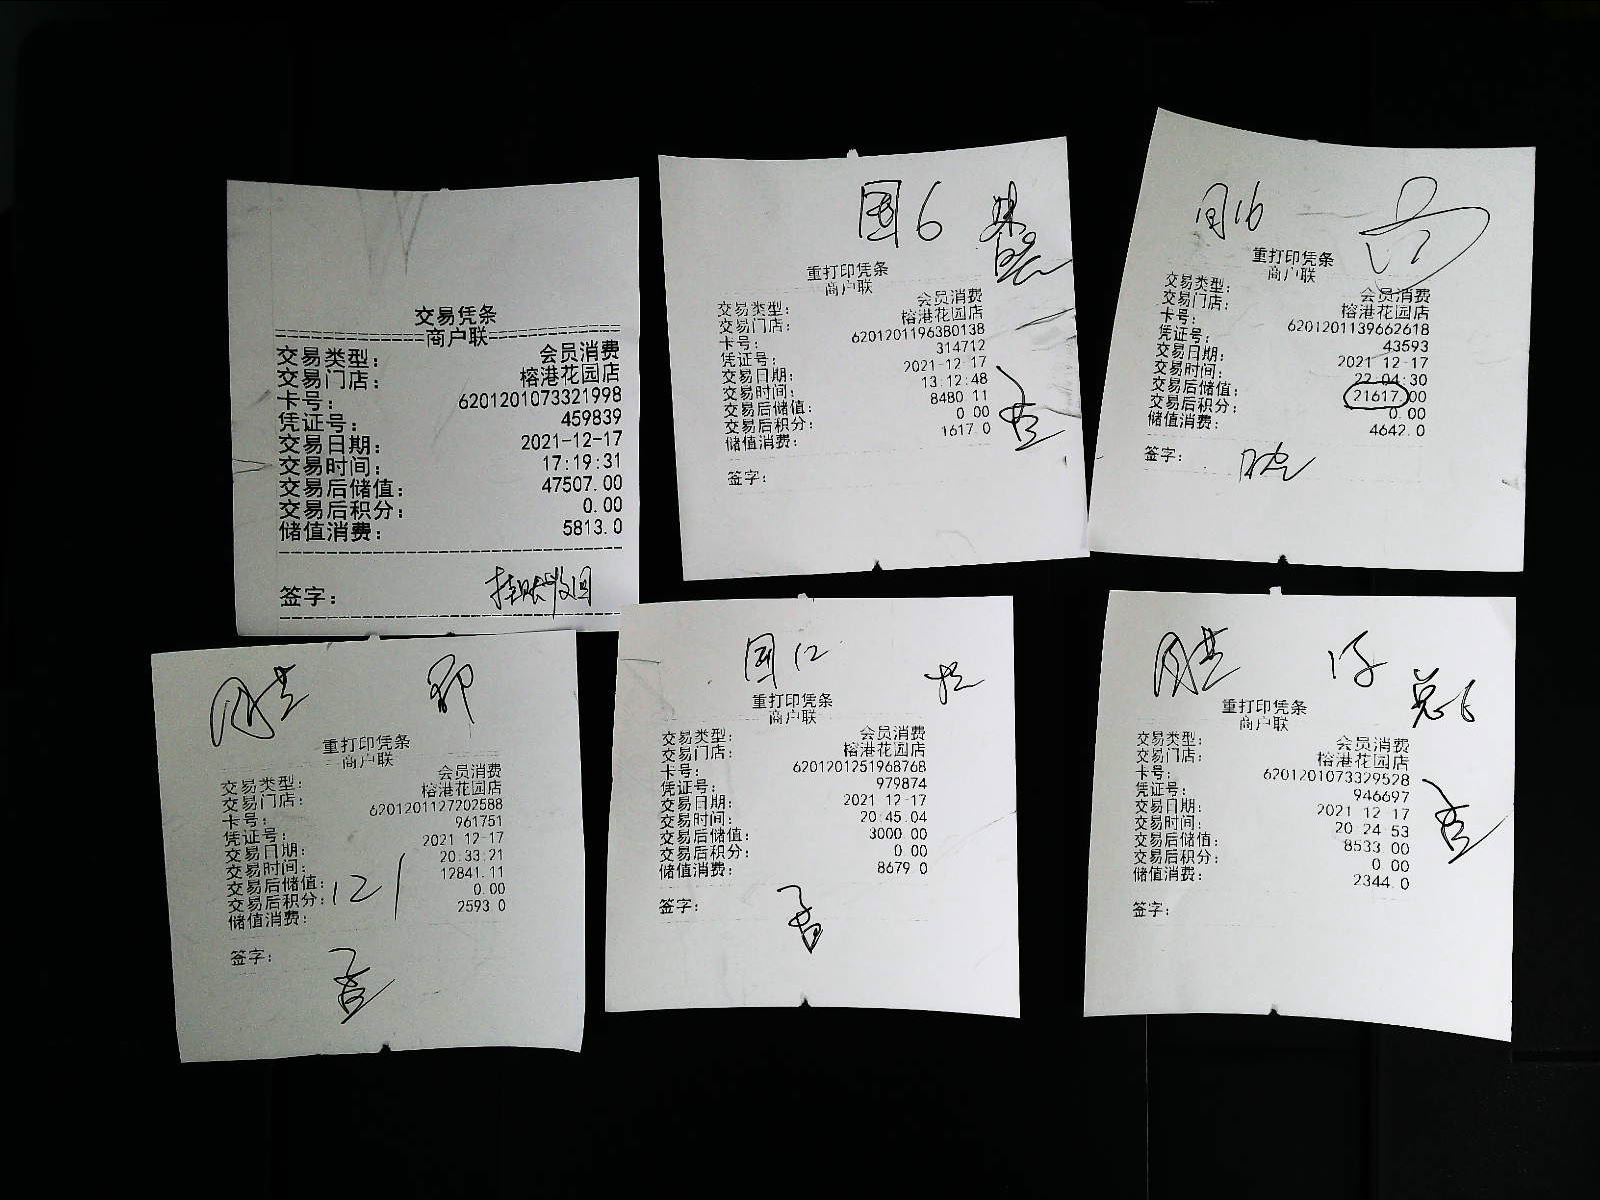 交易凭条
商户联
交易类型： 会员消费
交易门店： 榕港花园店
卡号： 6201201073321998
凭证号： 459839
交易日期： 2021-12-17
交易时间： 17:19:31
交易后储值： 47507.00
交易后积分： 0.00
储值消费： 5813.0
签字： 挂账收回
国6
重打印凭条
商户联
交易类型： 会员消费
交易门店： 榕港花园店
卡号： 6201201196380138
凭证号： 314712
交易日期： 2021-12-17
交易时间： 13:12:48
交易后储值： 8480 11
交易后积分： 0 00
储值消费： 1617 0
签字：
国16
重打印凭条
商户联
交易类型： 会员消费
交易门店： 榕港花园店
卡号： 6201201139662618
凭证号： 43593
交易日期： 2021 12-17
交易时间： 22 04:30
交易后储值： 21617.00
交易后积分： 0.00
储值消费： 4642.0
签字：
重打印凭条
商户联
交易类型： 会员消费
交易门店： 榕港花园店
卡号： 6201201127202588
凭证号： 961751
交易日期： 2021 12-17
交易时间： 20:33:21
交易后储值： 12841.11
交易后积分： 0.00
储值消费： 2593 0
121
签字：
国12
重打印凭条
商户联
交易类型： 会员消费
交易门店： 榕港花园店
卡号： 6201201251968768
凭证号： 979874
交易日期： 2021 12-17
交易时间： 20:45.04
交易后储值： 3000.00
交易后积分： 0 00
储值消费： 8679 0
签字：
总6
重打印凭条
商户联
交易类型： 会员消费
交易门店： 榕港花园店
卡号： 6201201073329528
凭证号： 946697
交易日期： 2021 12-17
交易时间： 20 24 53
交易后储值： 8533 00
交易后积分： 0 00
储值消费： 2344.0
签字：